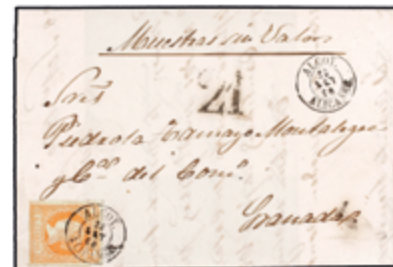 Muestras sin Valor
ALCOY
21
Sres
Piedrola Tamayo Montalegre
y Cia del Com.
Granada
ALCOY